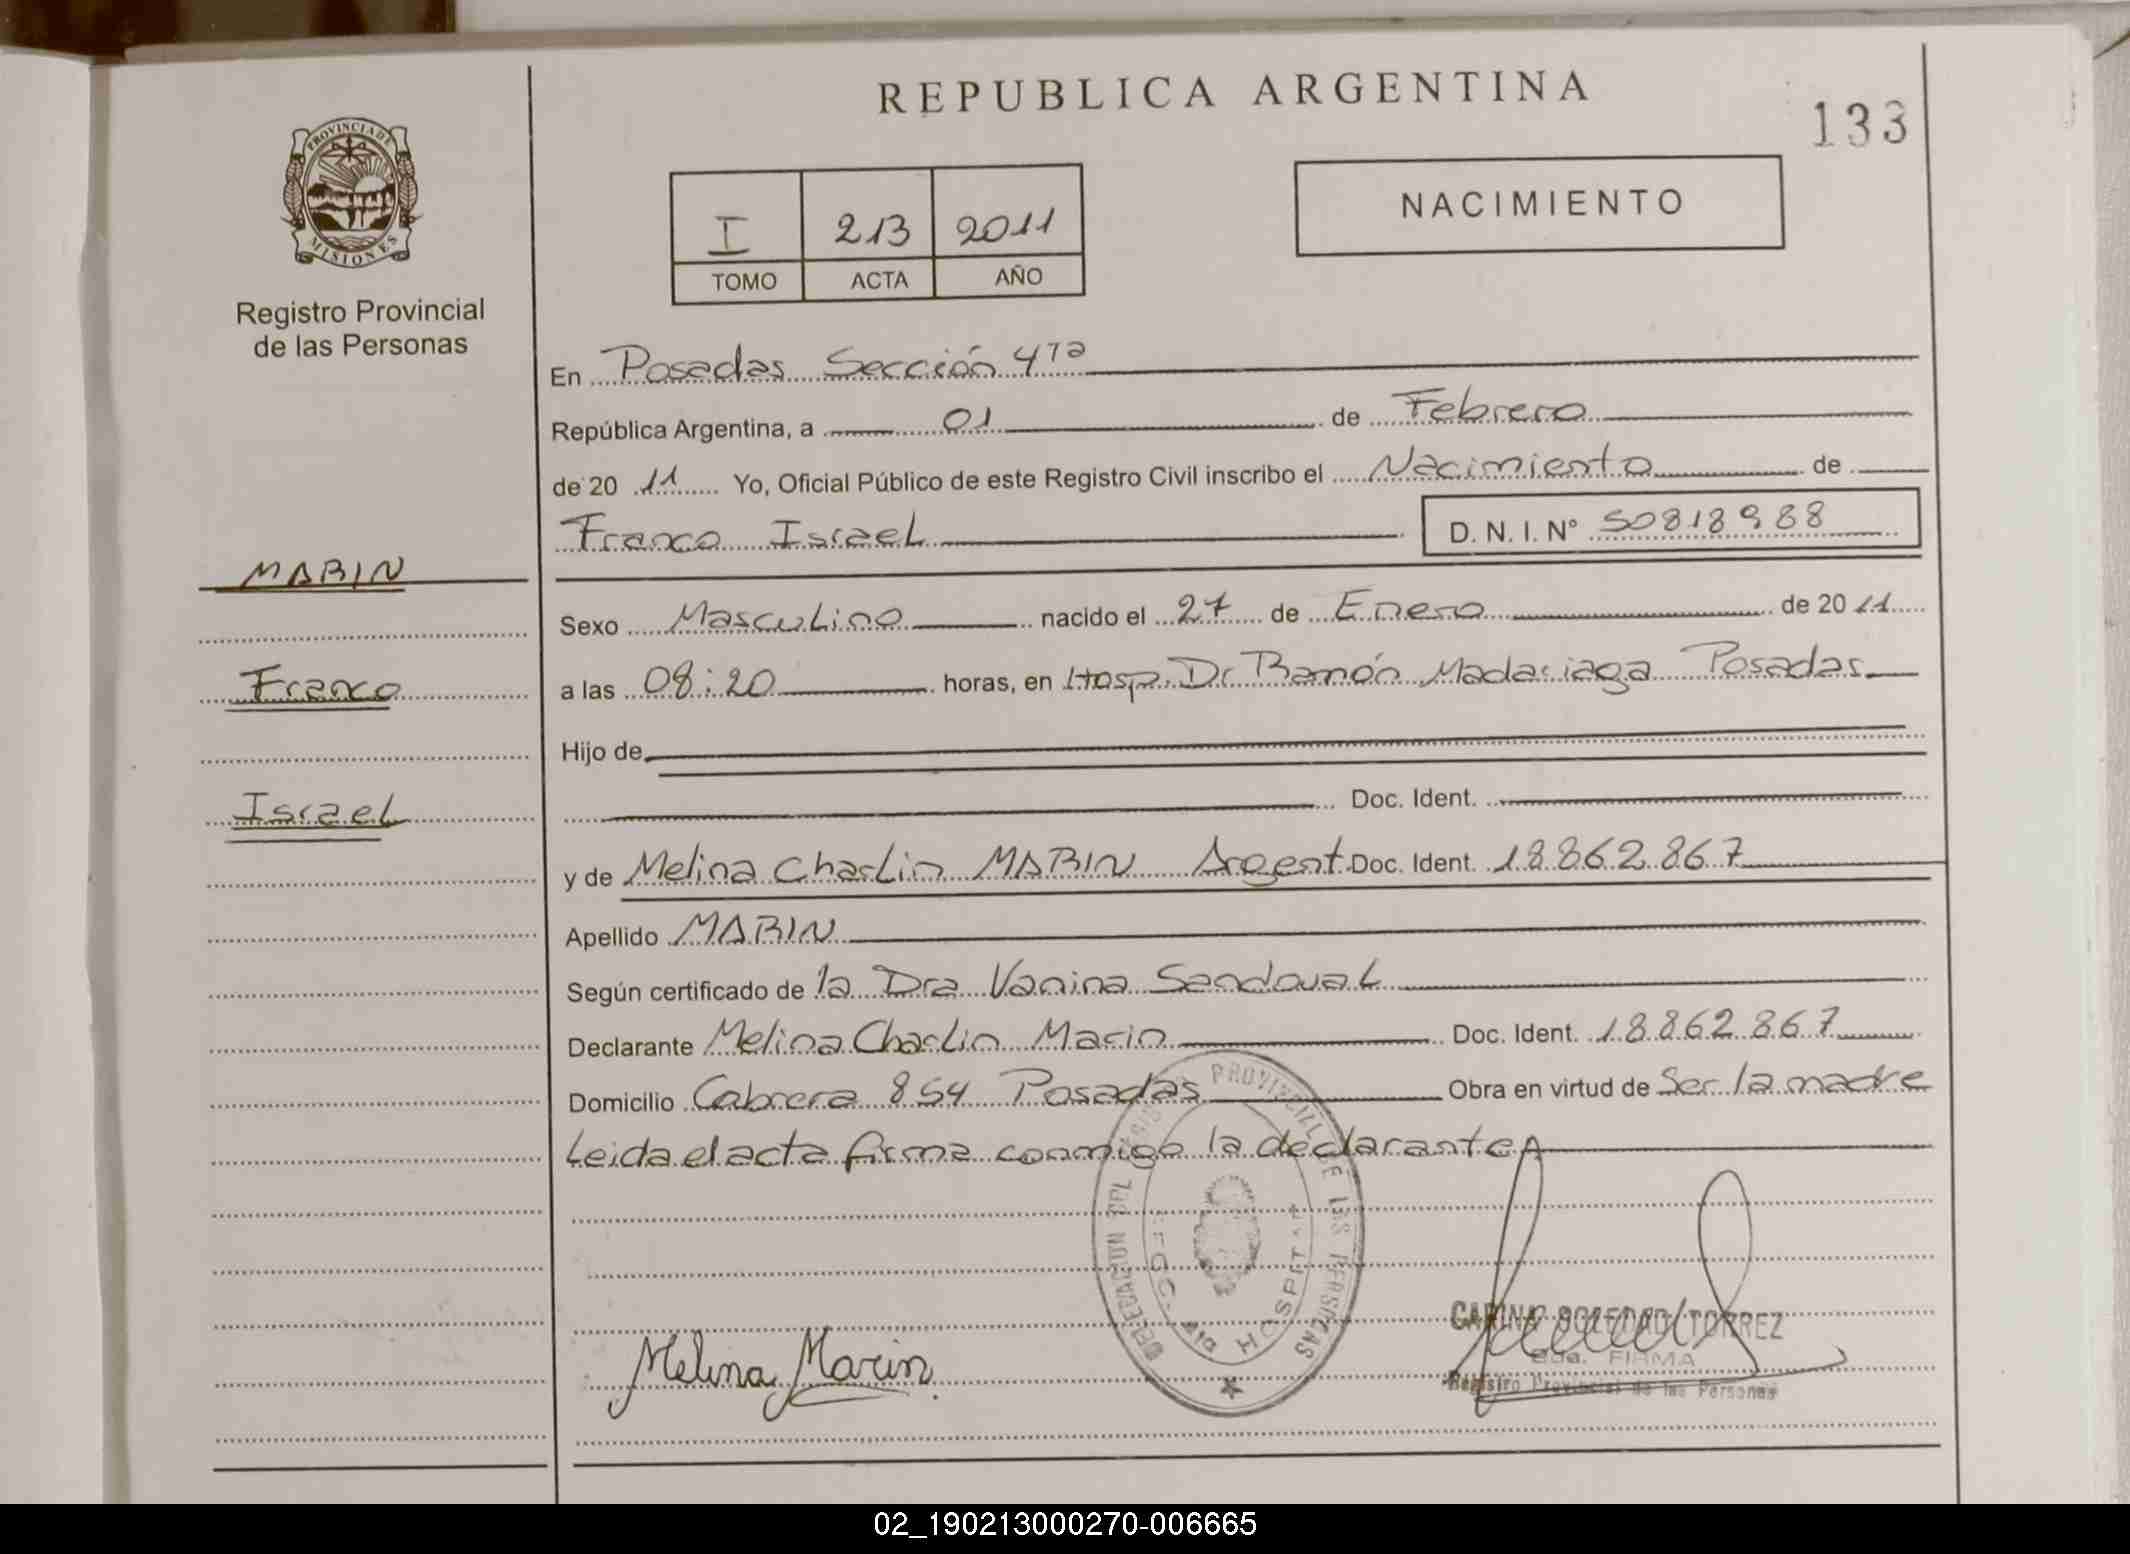 REPUBLICA ARGENTINA
133
PROVINCIA DE
MISIONES
Registro Provincial
de las Personas
I 213 2011
TOMO ACTA AÑO
NACIMIENTO
En Posadas Sección 4ta
República Argentina, a 01 de Febrero
de 20 11 Yo, Oficial Público de este Registro Civil inscribo el Nacimiento de
Franco Israel D. N. I. N° 50818988
MARIN
Franco
Israel
Sexo Masculino nacido el 27 de Enero de 20 11
a las 08:20 horas, en Hosp. Dr Ramón Madariaga Posadas
Hijo de
Doc. Ident.
y de Melina Charlin MARIN Argent Doc. Ident. 18862867
Apellido MARIN
Según certificado de la Dra Vanina Sandoval
Declarante Melina Charlin Marin Doc. Ident. 18.862.867
Domicilio Cabrera 854 Posadas Obra en virtud de Ser la madre
Leida el acta firma conmigo la declarante
DELEGACION DEL REGISTRO PROVINCIAL DE LAS PERSONAS
SECC. 4ta HOSPITAL
Melina Marin
CARINA SOLEDAD TORREZ
2da. FIRMA
Registro Provincial de las Personas
02_190213000270-006665